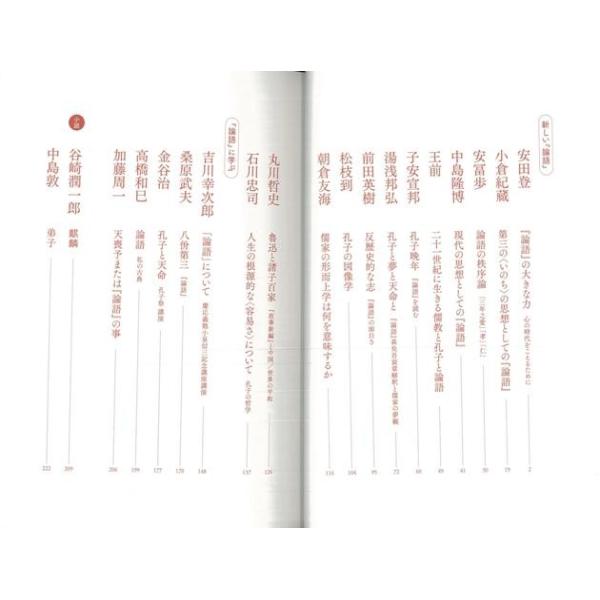 新しい『論語』
安田登 『論語』の大きな力 心の時代をこえるために 2
小倉紀蔵 第三の〈いのち〉の思想としての『論語』 19
安冨歩 論語の秩序論 「三年之愛」「孝」「仁」 50
中島隆博 現代の思想としての『論語』 41
王前 二十一世紀に生きる儒教と孔子と論語 49
子安宣邦 孔子晩年 『論語』を読む 60
湯浅邦弘 孔子と夢と天命と 『論語』 解釈と儒家の夢観 72
前田英樹 反歴史的な志 『論語』の面白さ 95
松枝到 孔子の図像学 104
朝倉友海 儒家の形而上学は何を意味するか 116
丸川哲史 魯迅と諸子百家 『故事新編』と中国/世界の平和 126
石川忠司 人生の根源的な〈容易さ〉について 孔子の哲学 137
『論語』に学ぶ
吉川幸次郎 『論語』について 慶応義塾小泉信三記念講座講演 148
桑原武夫 八佾第三 『論語』 170
金谷治 孔子と天命 孔子祭講演 177
高橋和巳 論語 私の古典 199
加藤周一 天喪予または『論語』の事 206
小説
谷崎潤一郎 麒麟 209
中島敦 弟子 222